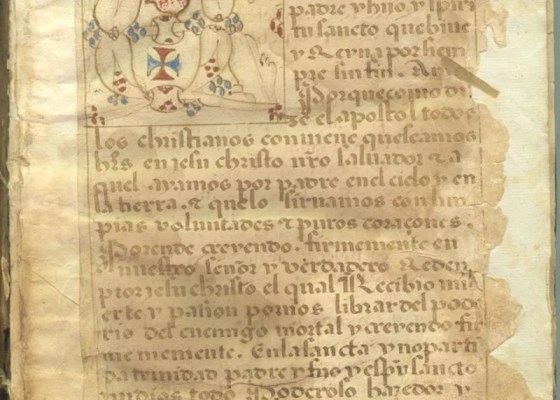 padre y hijo y spiri
tu sancto que biue
y Reyna por siem
pre sin fin. Amen
Porque como di
ze el apostol todos
los christianos conuiene que seamos
hrs en jesu christo nro saluador t a
quel ayamos por padre en el cielo y en
la tierra. t que lo siruamos con lim
pias voluntades t puros coraçones.
Porende creyendo. firmemente en
nuestro señor y verdadero Redem
ptor jesu christo el qual Recibio mu
erte y pasion por nos librar del pode
rio del enemigo mortal y creyendo fir
me memente. En la sancta y no parti
da trinidad padre y fijo y espu sancto
un dios todo Poderoso hazedor y